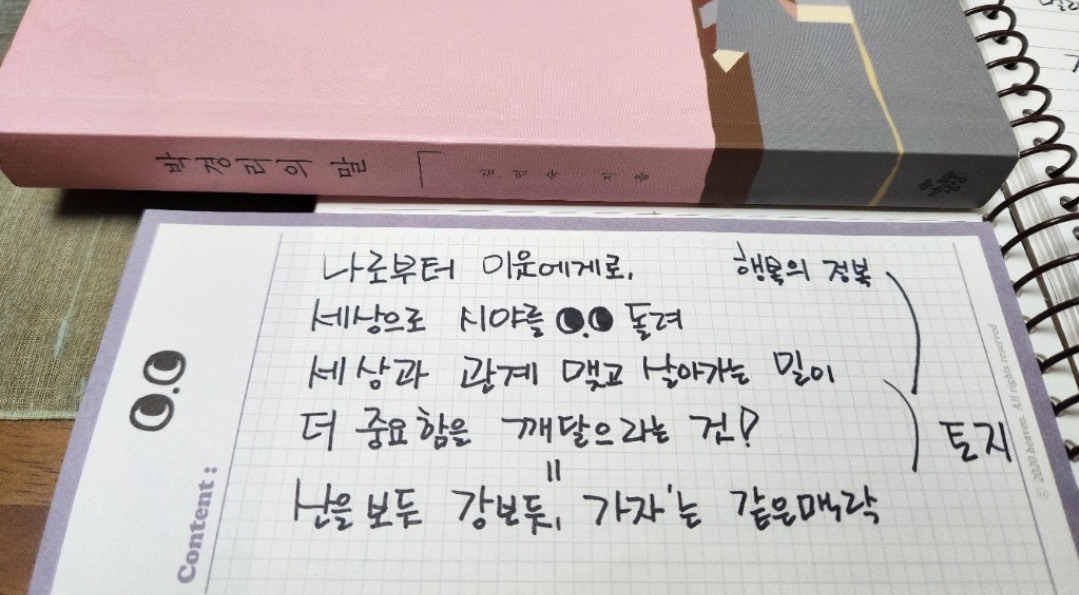 박경리의 말
김연숙 지음
나로부터 이웃에게로,
행복의 정복
세상으로 시야를 돌려
세상과 관계 맺고 살아가는 일이
더 중요함을 깨달으라는 건?
토지
=
산을 보듯 강보듯, 가자'는 같은맥락
Content :
© 2020 heaven. All rights reserved